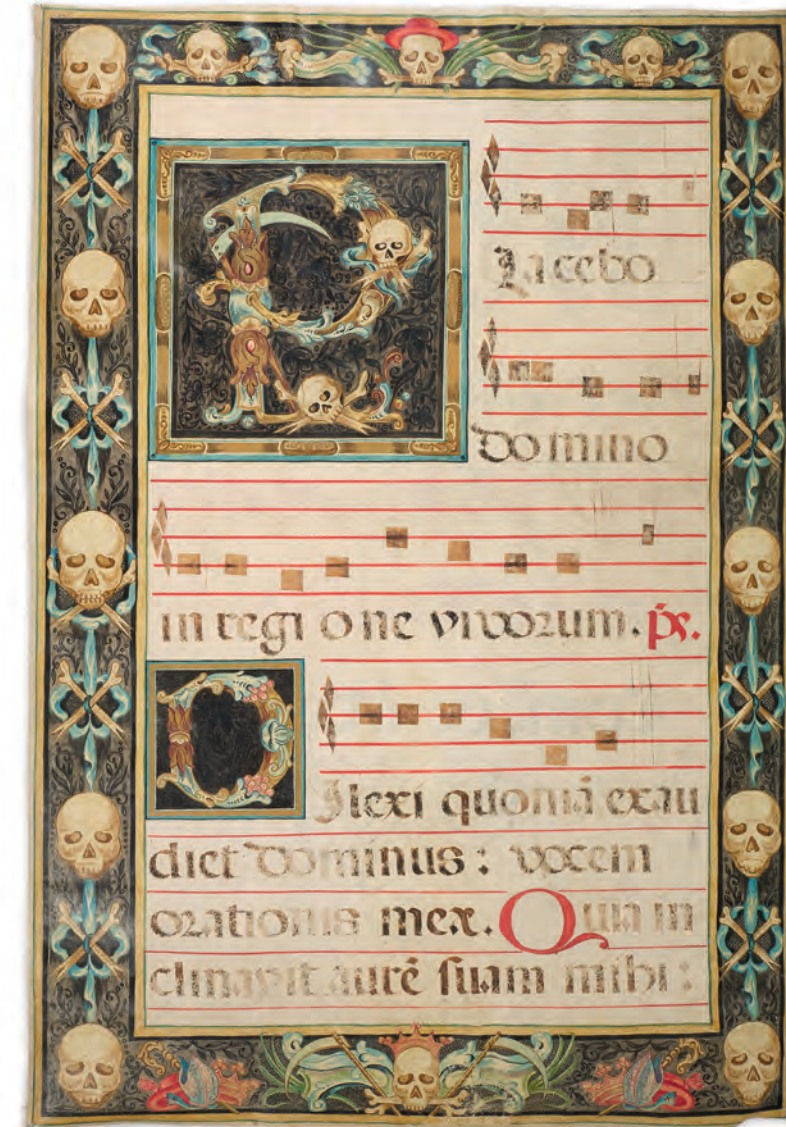 Placebo
domino
in regi one vivorum. ps.
Dilexi quoniā exau
diet dominus: vocem
orationis meæ. Quia in
clinavit aurē suam mihi: